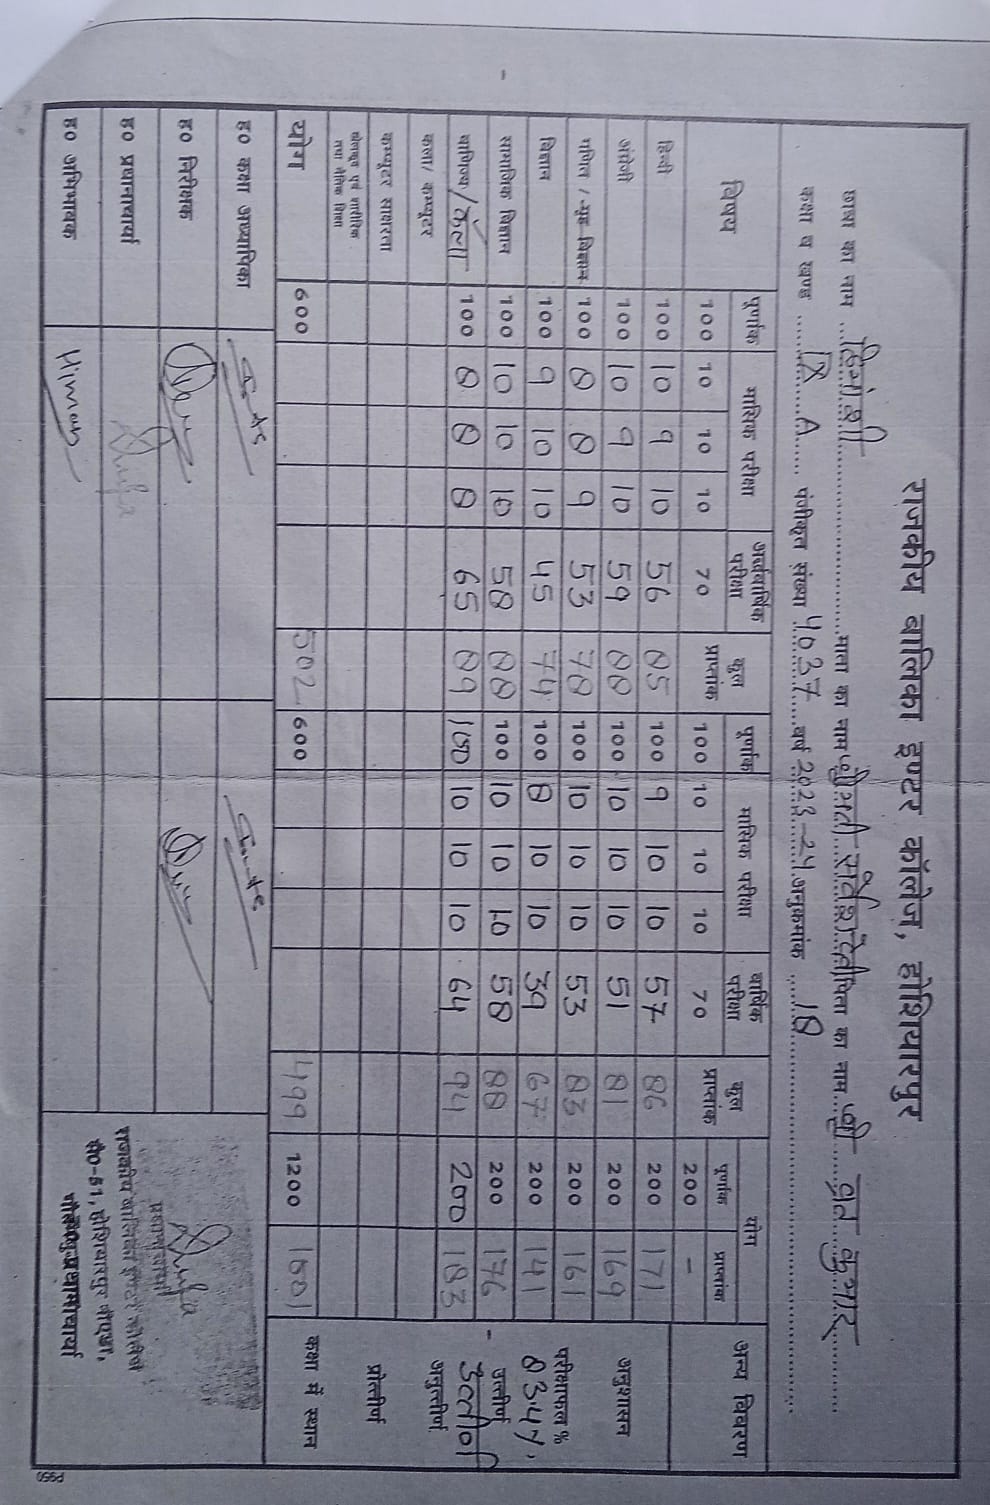 राजकीय बालिका इण्टर कॉलेज, होशियारपुर
छात्रा का नाम ...हिमांशी... माता का नाम श्रीमती सर्वेश देवी पिता का नाम श्री व्रत कुमार
कक्षा व खण्ड ...IX A... पंजीकृत संख्या 4037 वर्ष 2023-24 अनुक्रमांक ...18...
विषय पूर्णांक मासिक परीक्षा अर्धवार्षिक परीक्षा कुल प्राप्तांक पूर्णांक मासिक परीक्षा वार्षिक परीक्षा कुल प्राप्तांक योग अन्य विवरण
पूर्णांक प्राप्तांक
100 10 10 10 70 100 10 10 10 70 200 -
हिन्दी 100 10 9 10 56 85 100 9 10 10 57 86 200 171
अंग्रेजी 100 10 9 10 59 88 100 10 10 10 51 81 200 169 अनुशासन
गणित / गृह विज्ञान 100 8 8 9 53 78 100 10 10 10 53 83 200 161
विज्ञान 100 9 10 10 45 74 100 8 10 10 39 67 200 141 परीक्षाफल %
83.4%
सामाजिक विज्ञान 100 10 10 10 58 88 100 10 10 10 58 88 200 176 उत्तीर्ण
वाणिज्य / कला 100 8 8 8 65 89 100 10 10 10 64 94 200 183 - उत्तीर्ण
कला / कम्प्यूटर अनुत्तीर्ण
कम्प्यूटर साक्षरता प्रोन्नतीर्ण
खेलकूद एवं शारीरिक
तथा नैतिक शिक्षा
योग 600 502 600 499 1200 1001 कक्षा में स्थान
ह० कक्षा अध्यापिका
ह० निरीक्षक
ह० प्रधानाचार्या
ह० अभिभावक Himan
प्रधानाचार्या
राजकीय बालिका इण्टर कॉलेज
सै०-51, होशियारपुर नोएडा,
P950